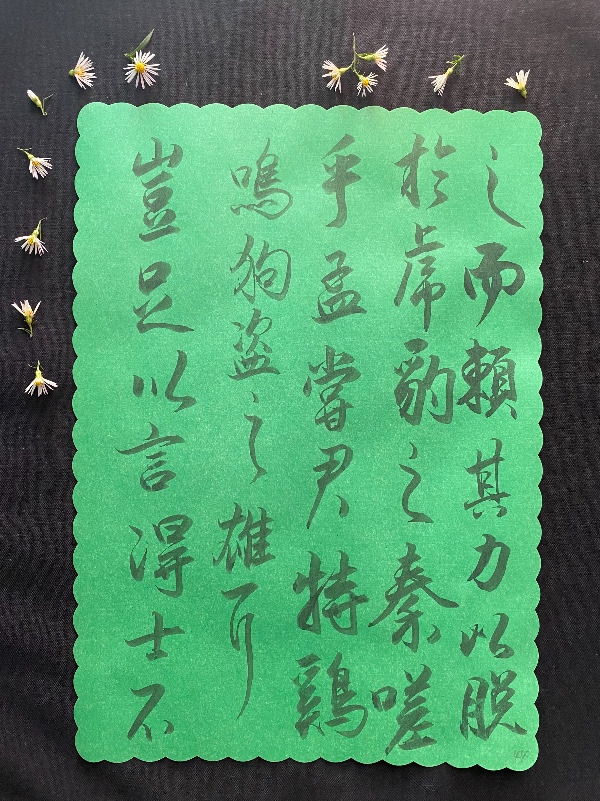 之而賴其力以脫
於虎豹之秦嗟
乎孟嘗君特鷄
鳴狗盜之雄耳
豈足以言得士不